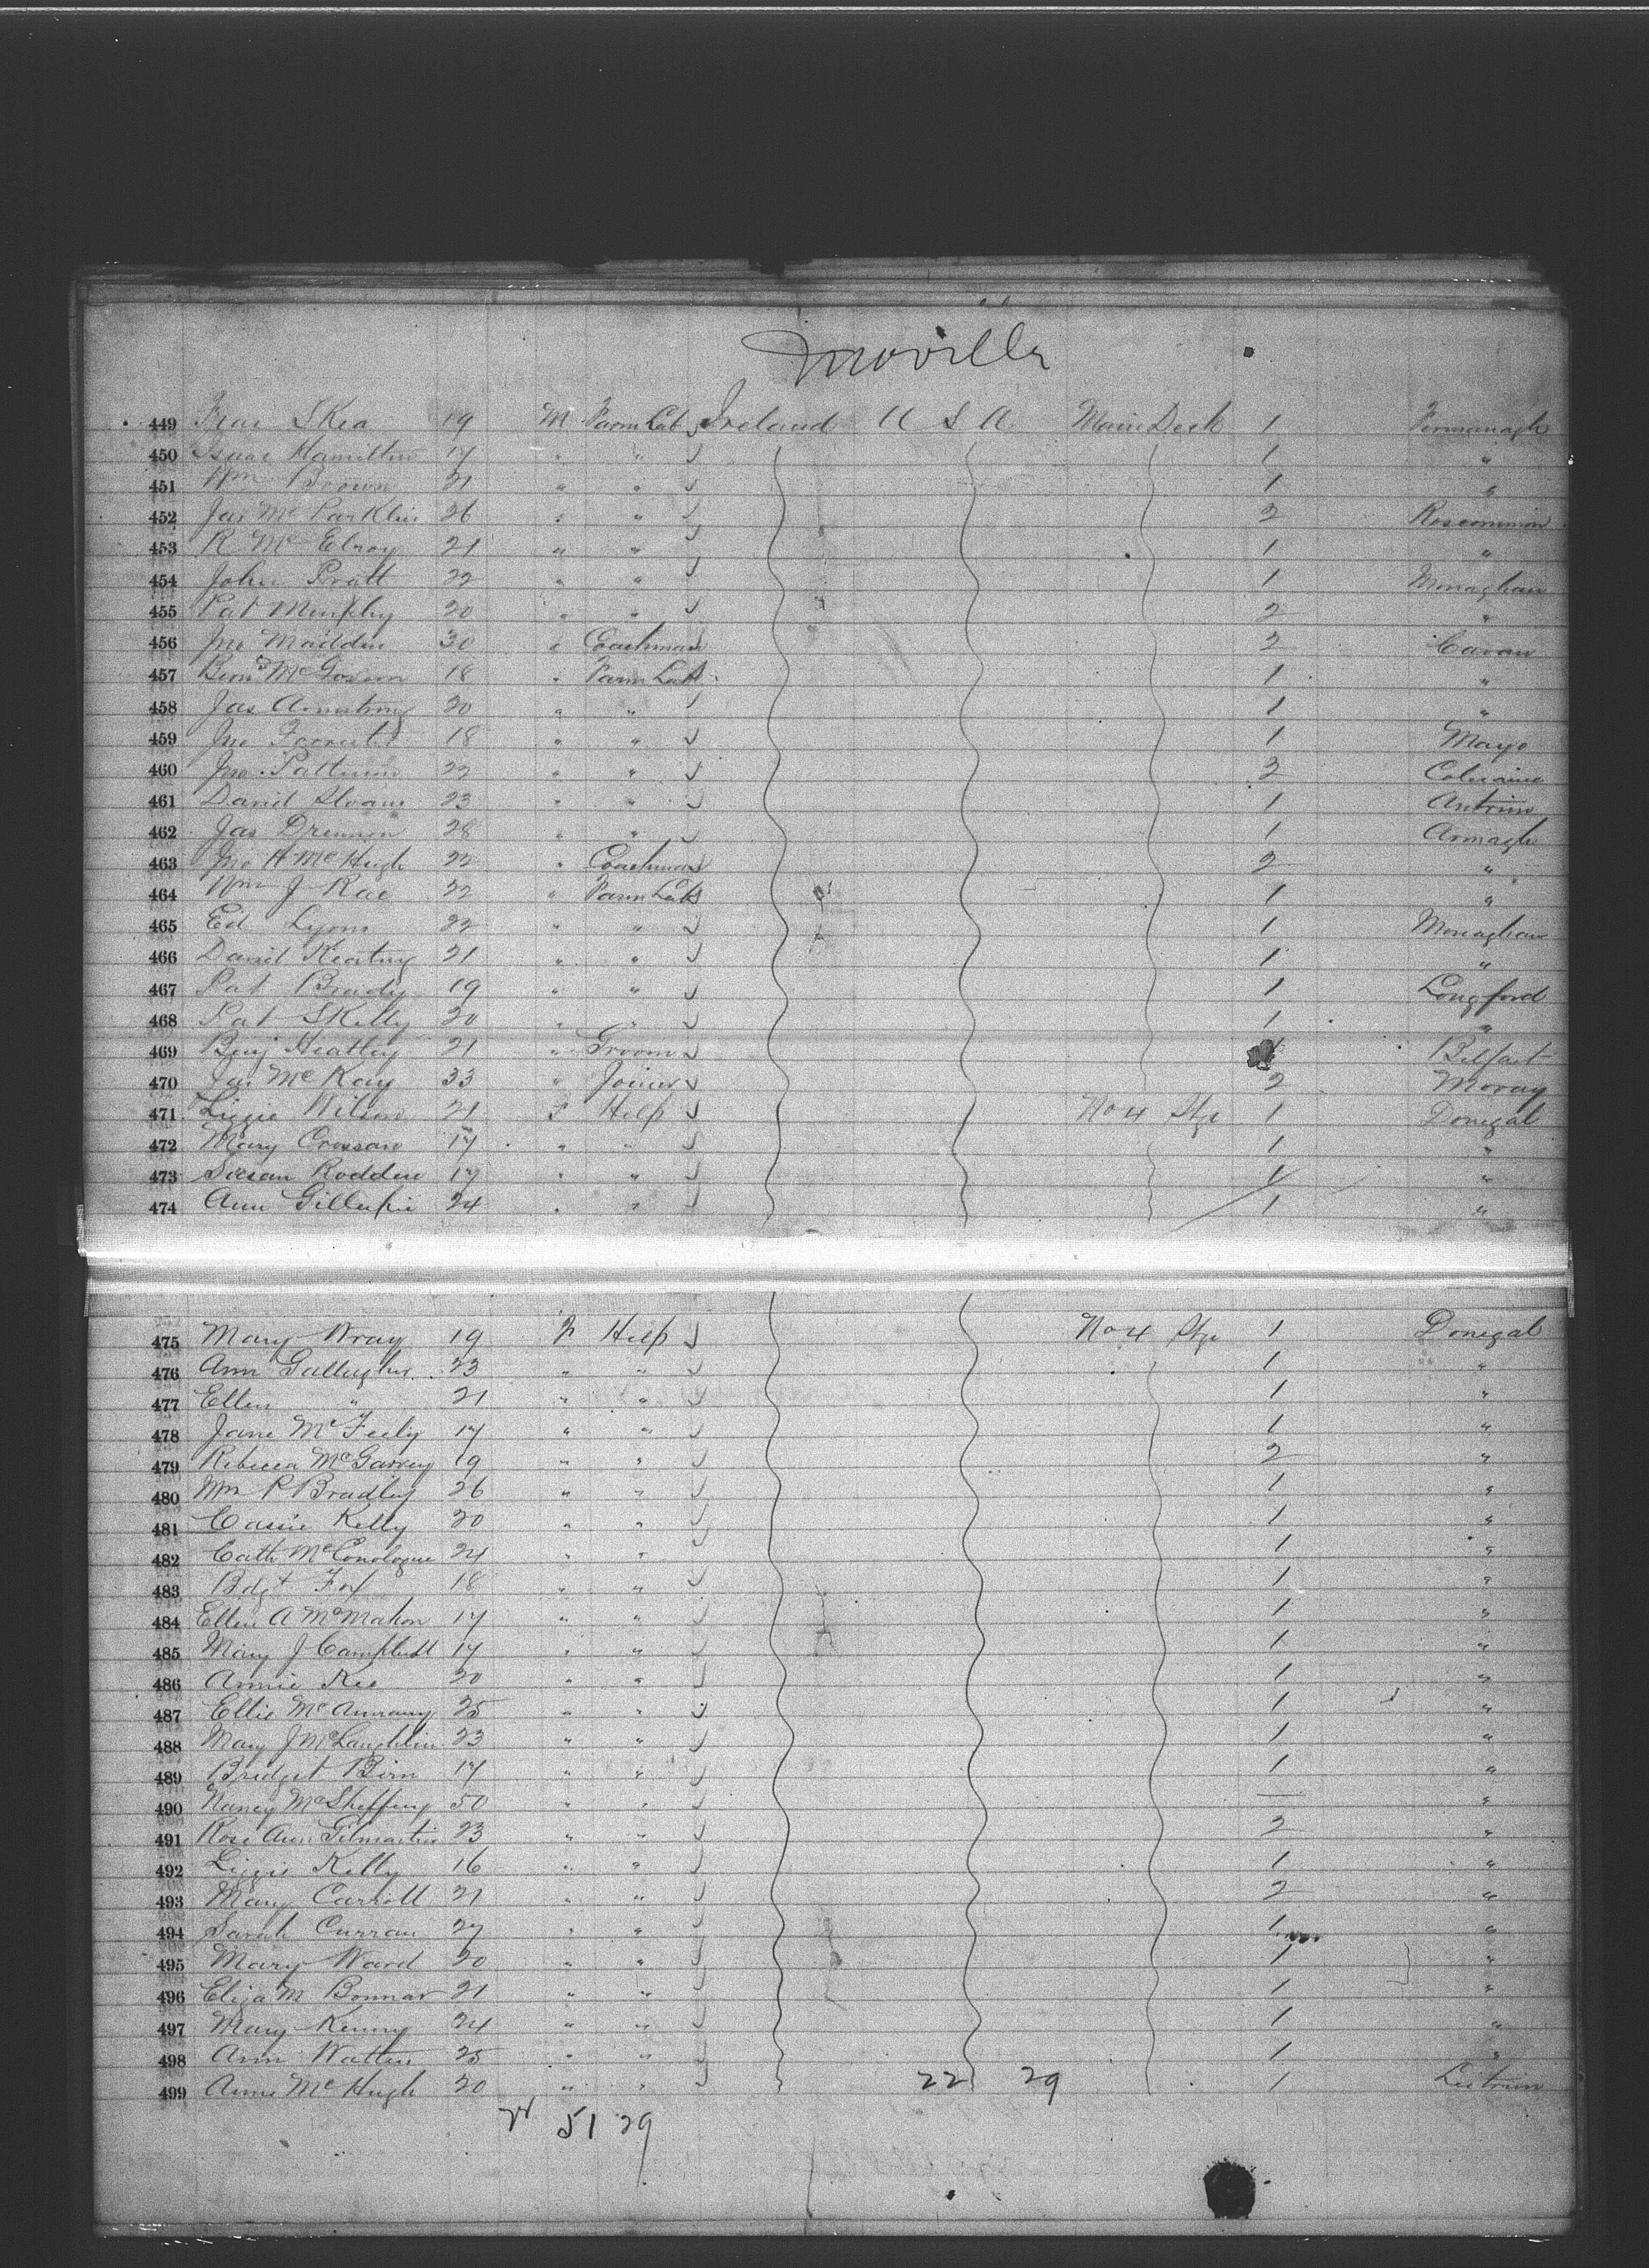 Moville
449 Fras Skea 19 M Farm Lab Ireland U S A Main Deck 1 Fermanagh
450 Isaac Hamilton 17 " " 1 "
451 Wm Brown 21 " " 1 "
452 Jas Mc Larklin 26 " " 2 Roscommon
453 R Mc Elroy 21 " " 1 "
454 John Pratt 22 " " 1 Monaghan
455 Pat Murphy 20 " " 2 "
456 Jno Madden 30 " Coachman 2 Cavan
457 McGovern 18 " Farm Lab 1 "
458 Jas Armstrong 20 " " 1 "
459 Jno 18 " " 1 Mayo
460 Jno Patterson 22 " " 2 Coleraine
461 David Sloane 23 " " 1 Antrim
462 Jas Drennen 28 " " 1 Armagh
463 Jno H McHugh 22 " Coachman 2 "
464 Wm J Rae 22 " Farm Lab 1 "
465 Ed Lyons 22 " " 1 Monaghan
466 Daniel Keating 21 " " 1 "
467 Pat Brady 19 " " 1 Longford
468 Pat Skelly 20 " " 1 "
469 Benj Heatley 21 " Groom Belfast
470 Jas McKay 33 " Joiner 2 Moray
471 Lizzie Wilson 21 F Help No 4 Stge 1 Donegal
472 Mary Crossan 17 " " 1 "
473 Susan Rodden 17 " " 1 "
474 Ann Gillespie 24 " " 1 "
475 Mary Wray 19 F Help No 4 Stge 1 Donegal
476 Ann Gallagher 23 " " 1 "
477 Ellen " 21 " " 1 "
478 Jane McFeely 17 " " 1 "
479 Rebecca McGarvey 19 " " 2 "
480 Mm P Bradley 26 " " 1 "
481 Cassie Kelly 20 " " 1 "
482 Cath McConologue 24 " " 1 "
483 Bdgt Fox 18 " " 1 "
484 Ellen A McMahon 17 " " 1 "
485 Mary J Campbell 17 " " 1 "
486 Annie Kee 20 " " 1 "
487 Ellie 25 " " 1 "
488 Mary J McLaughlin 23 " " 1 "
489 Bridget Birn 17 " " 1 "
490 Nancy McSheffery 50 " " — "
491 Rose Ann Gilmartin 23 " " 2 "
492 Lizzie Kelly 16 " " 1 "
493 Mary Carroll 21 " " 2 "
494 Sarah Curran 27 " " 1 "
495 Mary Ward 20 " " 1 "
496 Eliza M Bonnar 21 " " 1 "
497 Mary Kenny 24 " " 1 "
498 Ann Watters 25 " " 1 "
499 Anne McHugh 20 " " 22 29 1 Leitrim
51 29